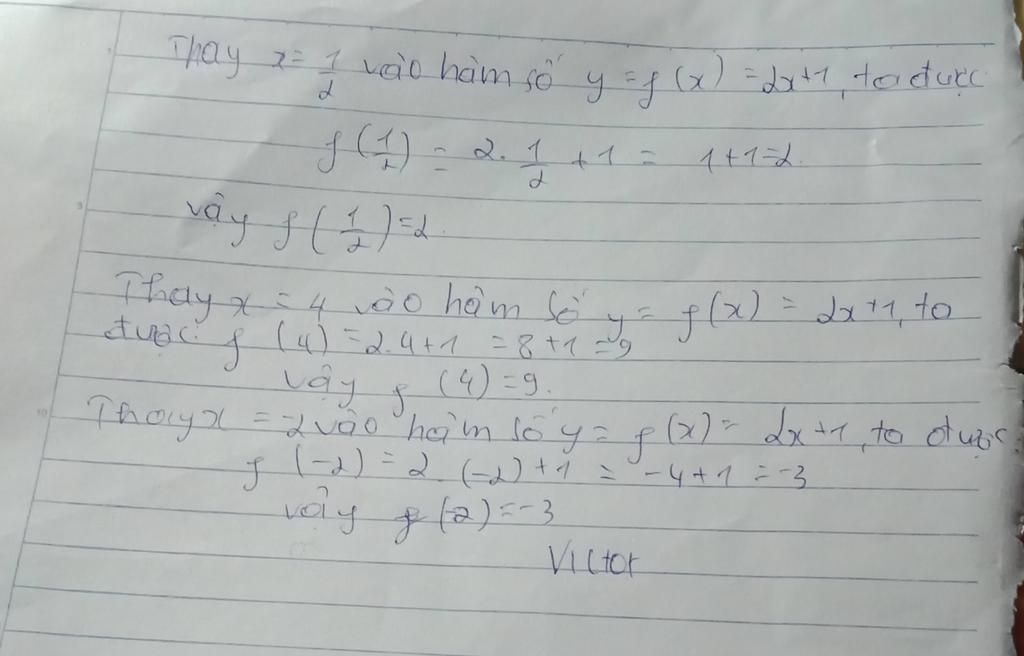 Thay x = 1/2 vào hàm số y = f(x) = 2x+1, ta được
f(1/2) = 2. 1/2 + 1 = 1+1=2.
vậy f(1/2)=2.
Thay x = 4 vào hàm số y = f(x) = 2x+1, ta
được: f (4) =2.4+1 =8+1=9
vậy f (4)=9.
Thay x =-2 vào hàm số y = f(x) = 2x+1, ta được
f (-2) = 2 (-2)+1 = -4+1 =-3
vậy f (-2) =-3
Victor